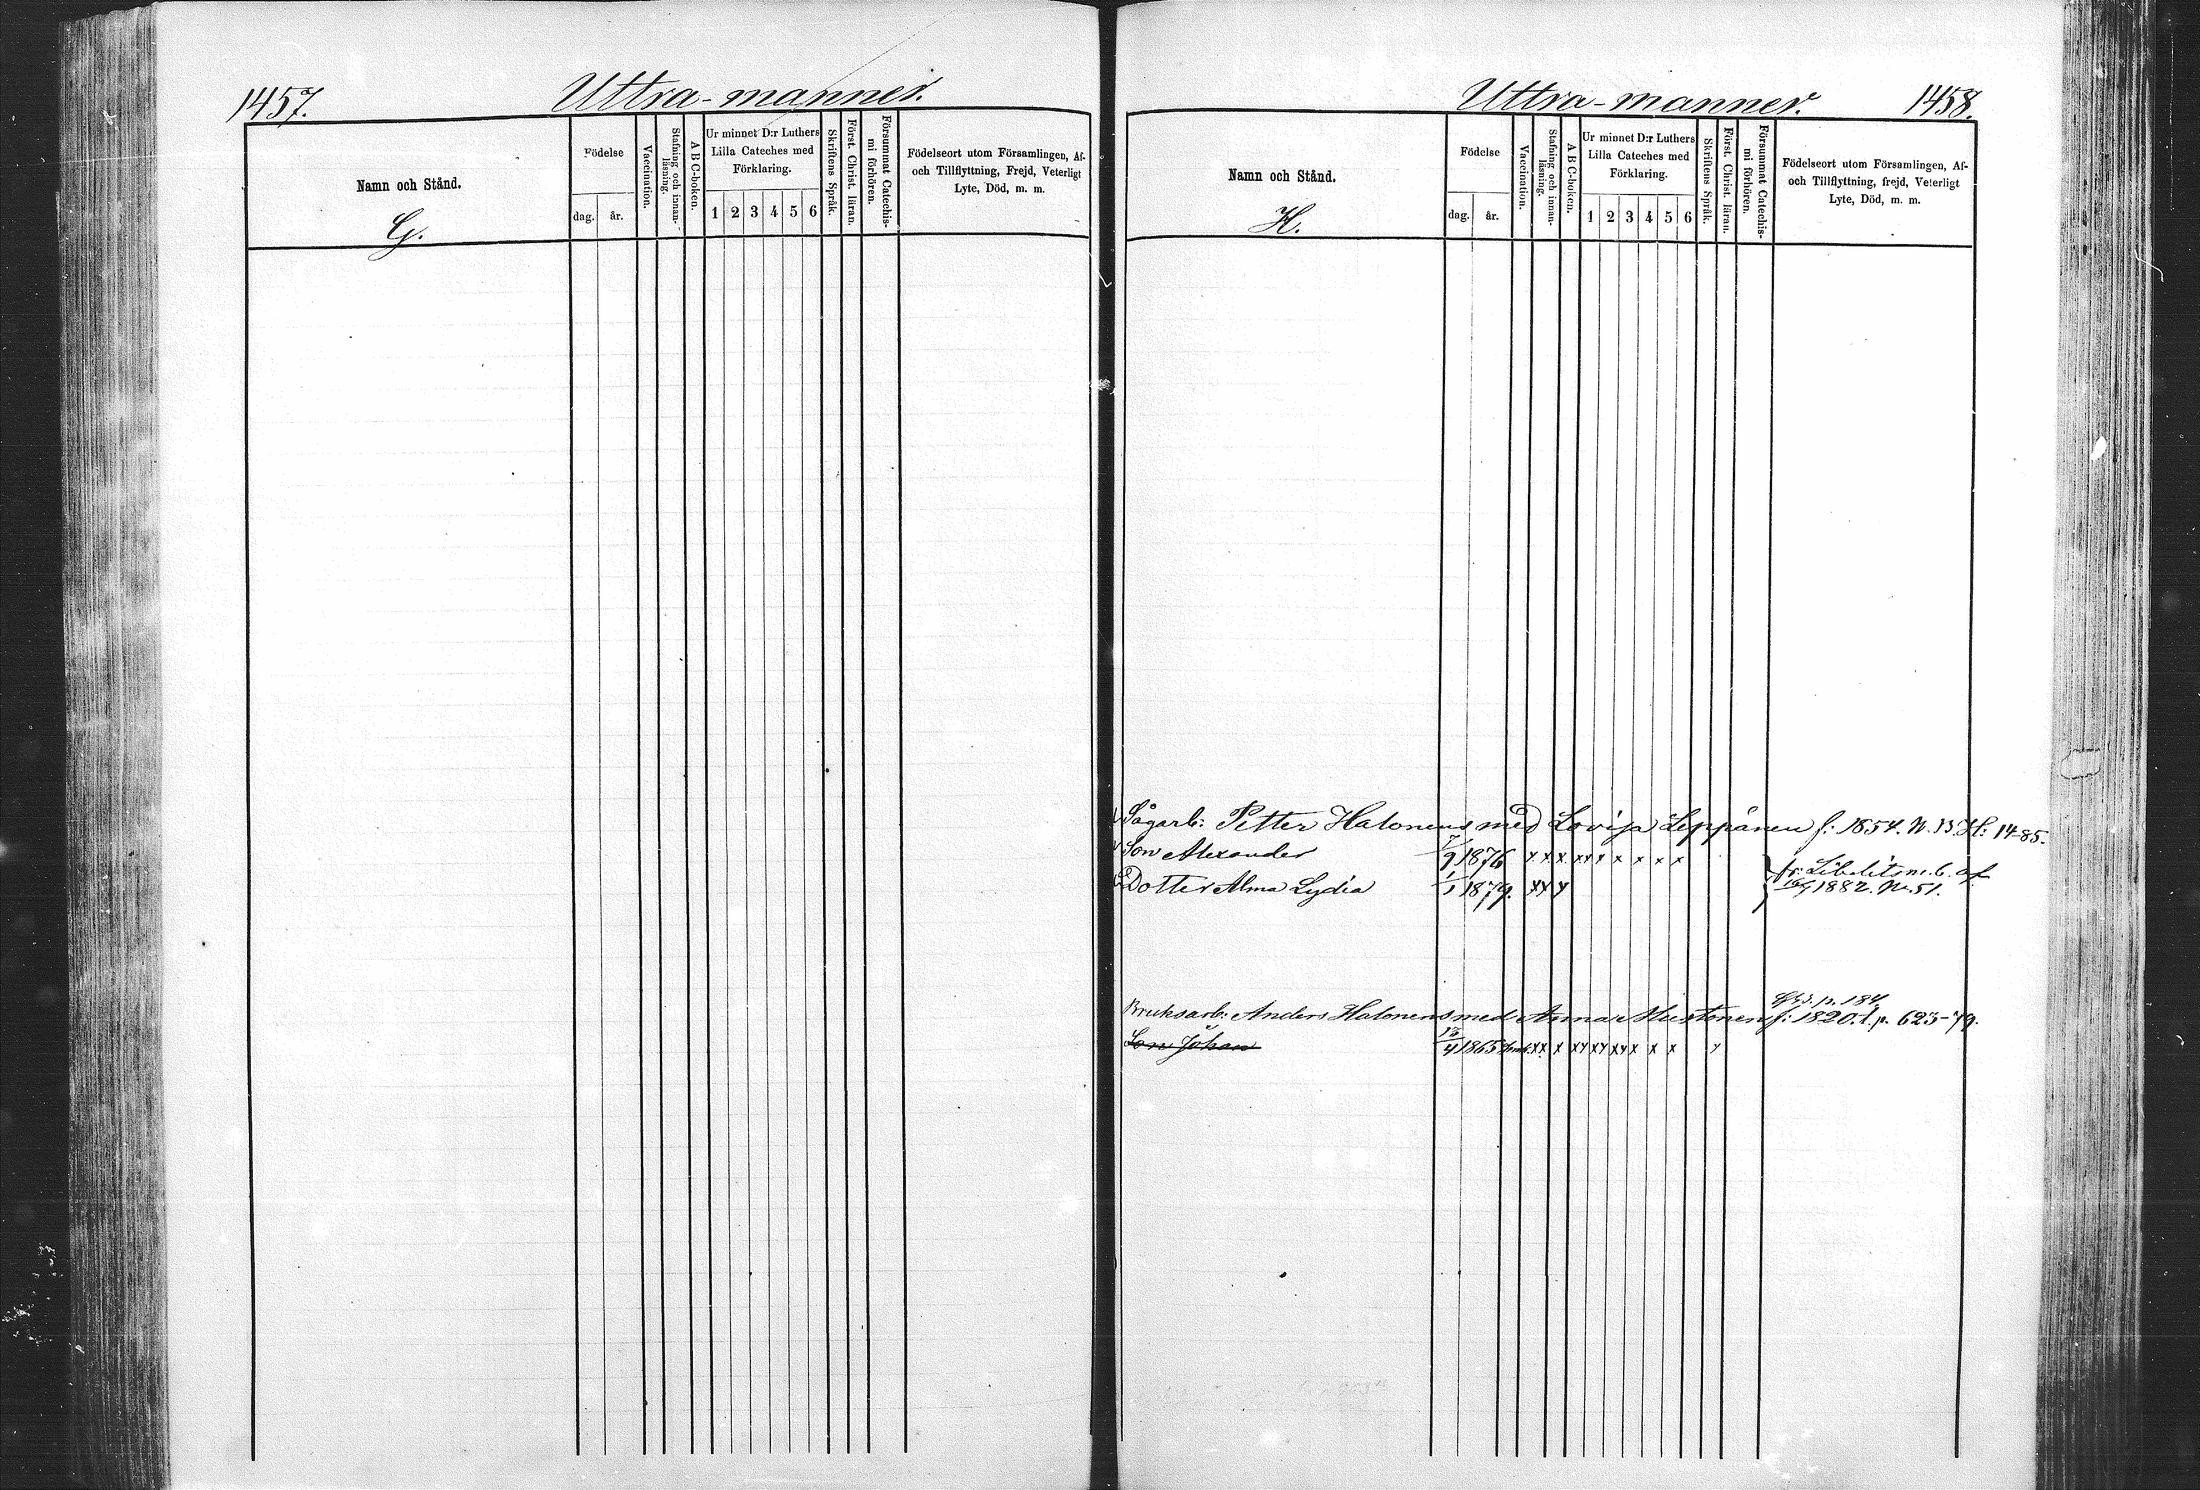 1457.
Uttra-manner.
Namn och Stånd.
G.
Födelse
dag.
år.
Vaccination.
Stafning och innan-
läsning.
A B C-boken.
Ur minnet D:r Luthers
Lilla Cateches med
Förklaring.
1 2 3 4 5 6
Skriftens Språk.
Först. Christ. läran.
Försummat Catechis-
mi förhören.
Födelseort utom Församlingen, Af-
och Tillflyttning, Frejd, Veterligt
Lyte, Död, m. m.
Uttra-manner.
1458.
Namn och Stånd.
H.
Födelse
dag.
år.
Vaccination.
Stafning och innan-
läsning.
A B C-boken.
Ur minnet D:r Luthers
Lilla Cateches med
Förklaring.
1 2 3 4 5 6
Skriftens Språk.
Först. Christ. läran.
Försummat Catechis-
mi förhören.
Födelseort utom Församlingen, Af-
och Tillflyttning, frejd, Veterligt
Lyte, Död, m. m.
Sågarb: Petter Halonens med Lovisa Leppänen f: 1854. N. 13. H: 14-85.
Son Alexander 7/9 1876 x x x xx x x x x x
fr. Libelits m. b. af
Dotter Alma Lydia 1/1 1879. xx x
1882. No 51.
p. 184
Bruksarb: Anders Halonens med Anna Mustonen f: 1820. l. p. 623-79.
Son Johan 13/4 1865 xx x xx xx xx x x x x